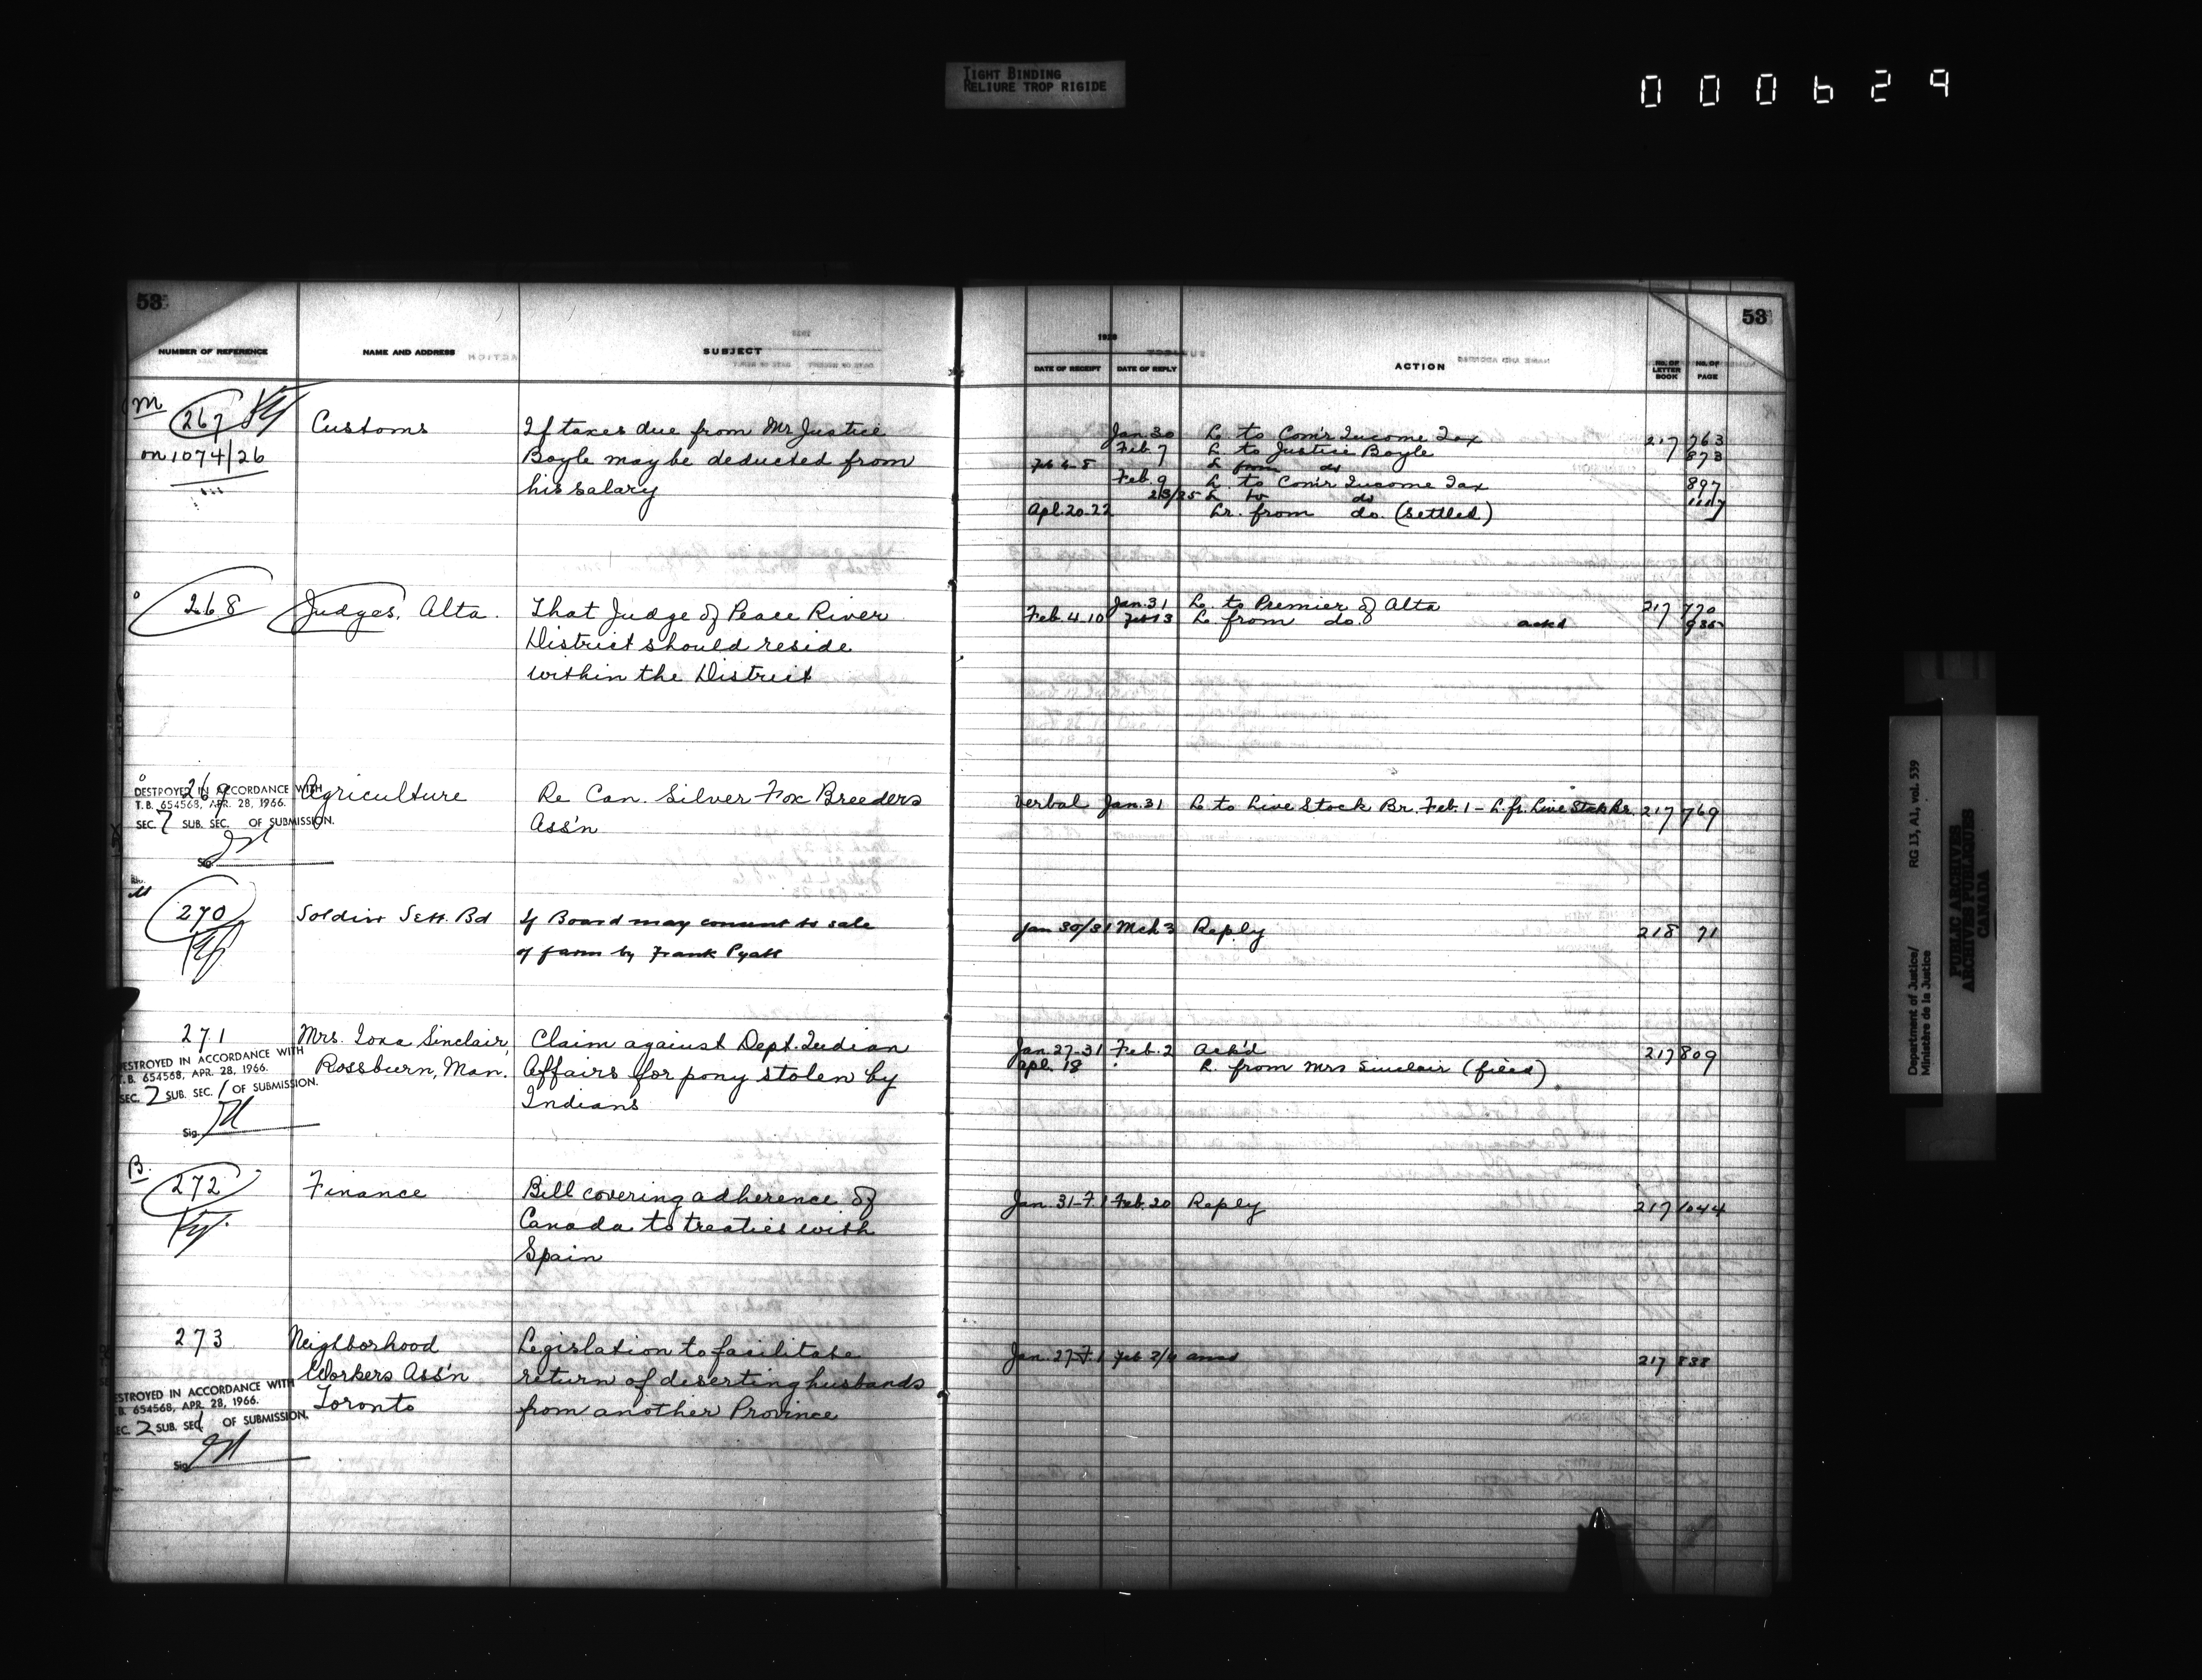 TIGHT BINDING
RELIURE TROP RIGIDE
000629
53
53
NUMBER OF REFERENCE NAME AND ADDRESS SUBJECT
1928
DATE OF RECEIPT DATE OF REPLY ACTION NO. OF LETTER BOOK NO. OF PAGE
M
267 Customs If taxes due from Mr Justice
on 1074/26 Boyle may be deducted from
his salary
Jan. 30 L. to Com'r Income Tax 217 763
Feb. 7 L. to Justice Boyle 873
L from do
Feb. 9 L. to Com'r Income Tax 897
L to do 1117
Apl. 20-22 Lr. from do. (settled)
268 Judges, Alta. That Judge of Peace River
District should reside
within the District
Jan. 31 L. to Premier of Alta 217 770
Feb. 4-10 Feb 13 L. from do. ackd 935
269 Agriculture Re Can. Silver Fox Breeders
Ass'n
DESTROYED IN ACCORDANCE WITH
T.B. 654568, APR. 28, 1966.
SEC. 7 SUB. SEC. OF SUBMISSION.
Sig.
Verbal Jan. 31 L. to Live Stock Br. Feb. 1 - L. fr. Live Stock Br. 217 769
270 Soldier Sett. Bd If Board may consent to sale
of farm by Frank Pyatt
Jan 30/31 Mch 3 Reply 218 71
271 Mrs. Iona Sinclair, Claim against Dept. Indian
Rossburn, Man. Affairs for pony stolen by
Indians
DESTROYED IN ACCORDANCE WITH
T.B. 654568, APR. 28, 1966.
SEC. 2 SUB. SEC. 1 OF SUBMISSION.
Sig.
Jan. 27-31 Feb. 2 Ack'd 217 809
Apl. 18 L. from Mrs Sinclair (filed)
B.
272 Finance Bill covering adherence of
Canada to treaties with
Spain
Jan. 31-F. 1 Feb. 20 Reply 217 1044
273 Neighborhood Legislation to facilitate
Workers Ass'n return of deserting husbands
Toronto from another Province
DESTROYED IN ACCORDANCE WITH
T.B. 654568, APR. 28, 1966.
SEC. 2 SUB. SEC. 1 OF SUBMISSION.
Sig.
Jan. 27-F. 1 Feb 217 838
Department of Justice/
Ministère de la Justice
RG 13, A1, vol. 539
PUBLIC ARCHIVES
ARCHIVES PUBLIQUES
CANADA